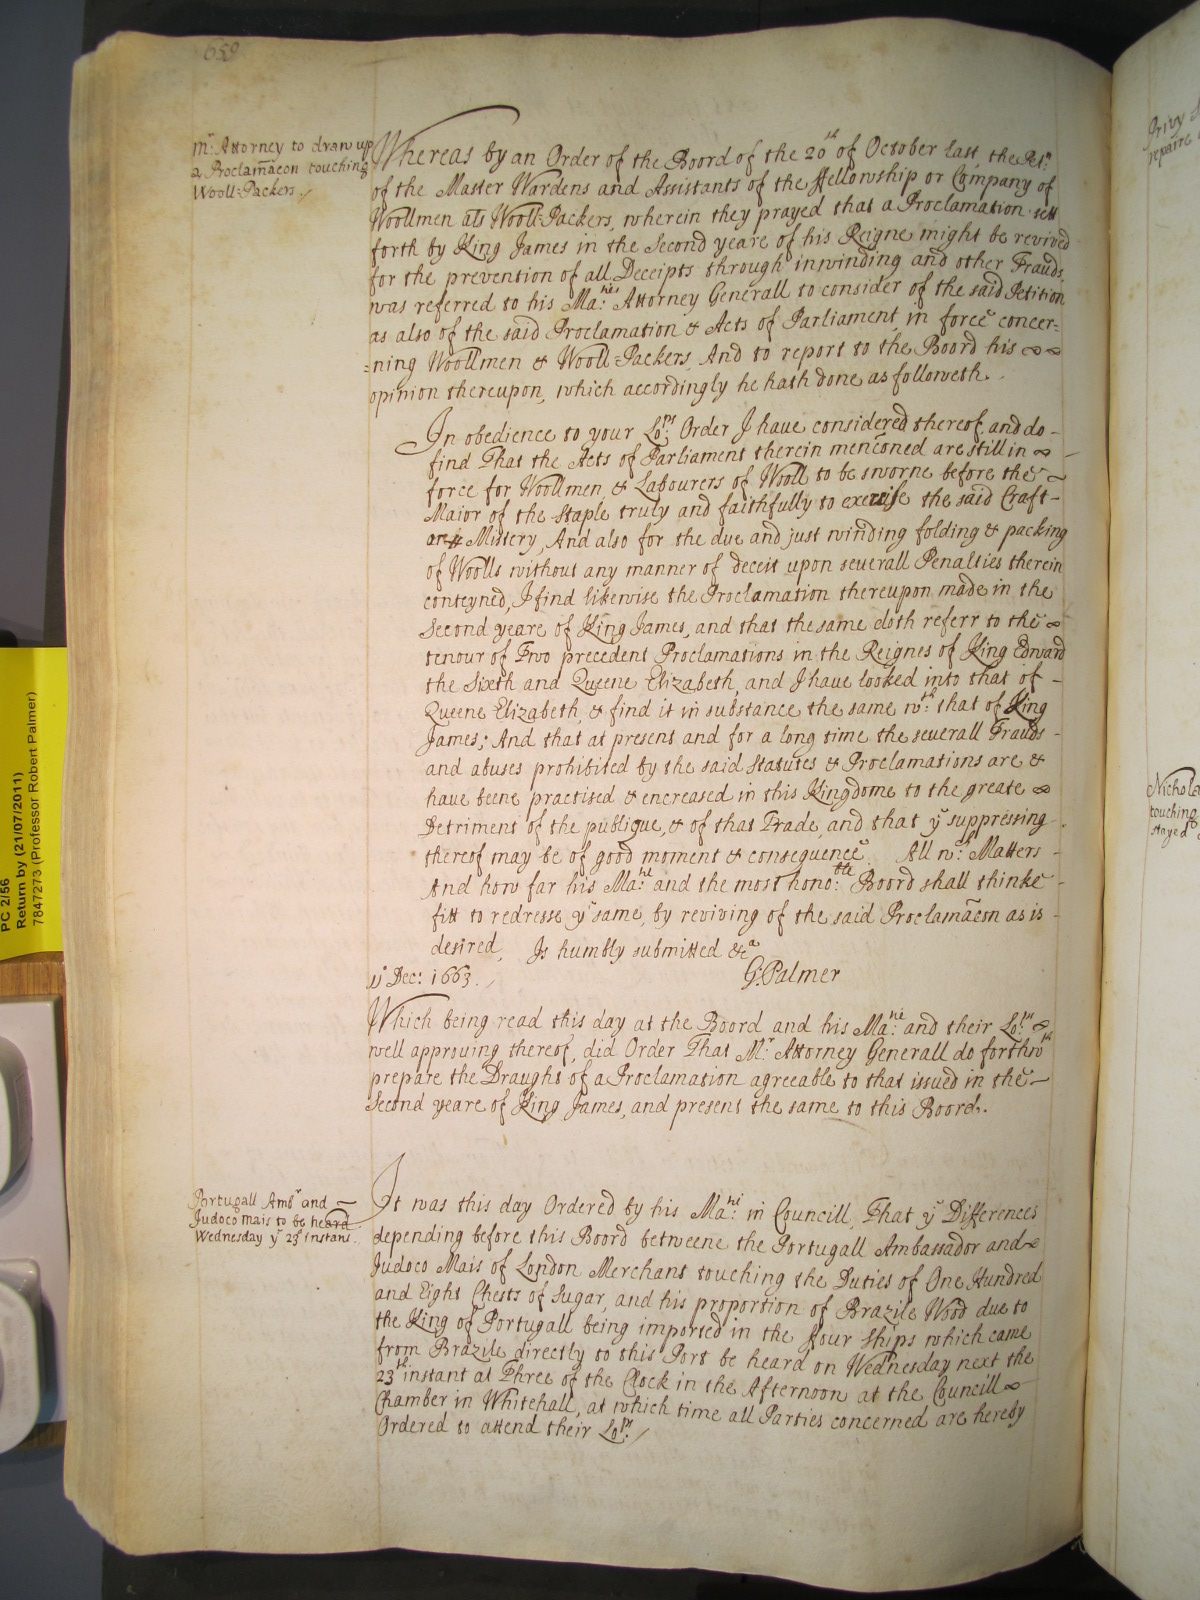 659
Mr: Attorney to draw up
a Proclamacon touching
Wooll-Packers.
Whereas by an Order of the Board of the 20th of October last, the Petn:
of the Master Wardens and Assistants of the ffellowship or Company of
Woollmen als Wooll-Packers, wherein they prayed that a Proclamation sett
forth by King James in the Second yeare of his Reigne might be revived
for the prevention of all Deceipts through inwinding and other Frauds
was referred to his Ma:ties Attorney Generall to consider of the said Petition
as also of the said Proclamation & Acts of Parliament in force concer=
=ning Woollmen & Wooll=Packers, And to report to the Board his
opinion thereupon, which accordingly he hath done as followeth.
In obedience to your Lopps: Order I have considered thereof, and do
find That the Acts of Parliament therein menconed are still in
force for Woollmen, & Labourers of Wooll to be sworne before the
Maior of the Staple truly and faithfully to exercise the said Craft
Mistery, And also for the due and just winding folding & packing
of Woolls without any manner of deceit upon severall Penalties therein
conteyned, I find likewise the Proclamation thereupon made in the
Second yeare of King James, and that the same doth referr to the
tenour of Two precedent Proclamations in the Reignes of King Edward
the Sixth and Queene Elizabeth, and I have looked into that of
Queene Elizabeth, & find it in substance the same wth: that of King
James; And that at present and for a long time the severall Frauds
and abuses prohibited by the said Statutes & Proclamations are &
have beene practised & encreased in this Kingdome to the greate
Detriment of the publique, & of that Trade, and that ye suppressing
thereof may be of good moment & consequence. All wch: Matters
And how far his Ma:tie and the most hono:ble Board shall thinke
fitt to redresse ye same, by reviving of the said Proclamacon as is
desired, Is humbly submitted &ca
Dec: 1663.
G: Palmer
Which being read this day at the Board and his Ma:tie and their Lo:pps
well approving thereof, did Order That Mr: Attorney Generall do forthwth
prepare the Draught of a Proclamation agreeable to that issued in the
Second yeare of King James, and present the same to this Board.
Portugall Ambr and
Judoco Mais to be heard
Wednesday ye 23th instant.
It was this day Ordered by his Ma:tie in Councill, That ye Differences
depending before this Board betweene the Portugall Ambassador and
Judoco Mais of London Merchant touching the Duties of One Hundred
and Eight Chests of Sugar, and his proportion of Brazile Wood due to
the King of Portugall being imported in the ffour Ships which came
from Brazile directly to this Port be heard on Wednesday next the
23th instant at Three of the Clock in the Afternoon at the Councill
Chamber in Whitehall, at which time all Parties concerned are hereby
Ordered to attend their Lopps:
PC 2/56
Return by (21/07/2011)
7847273 (Professor Robert Palmer)
Privy
repaire
Nichola
touching
stayed